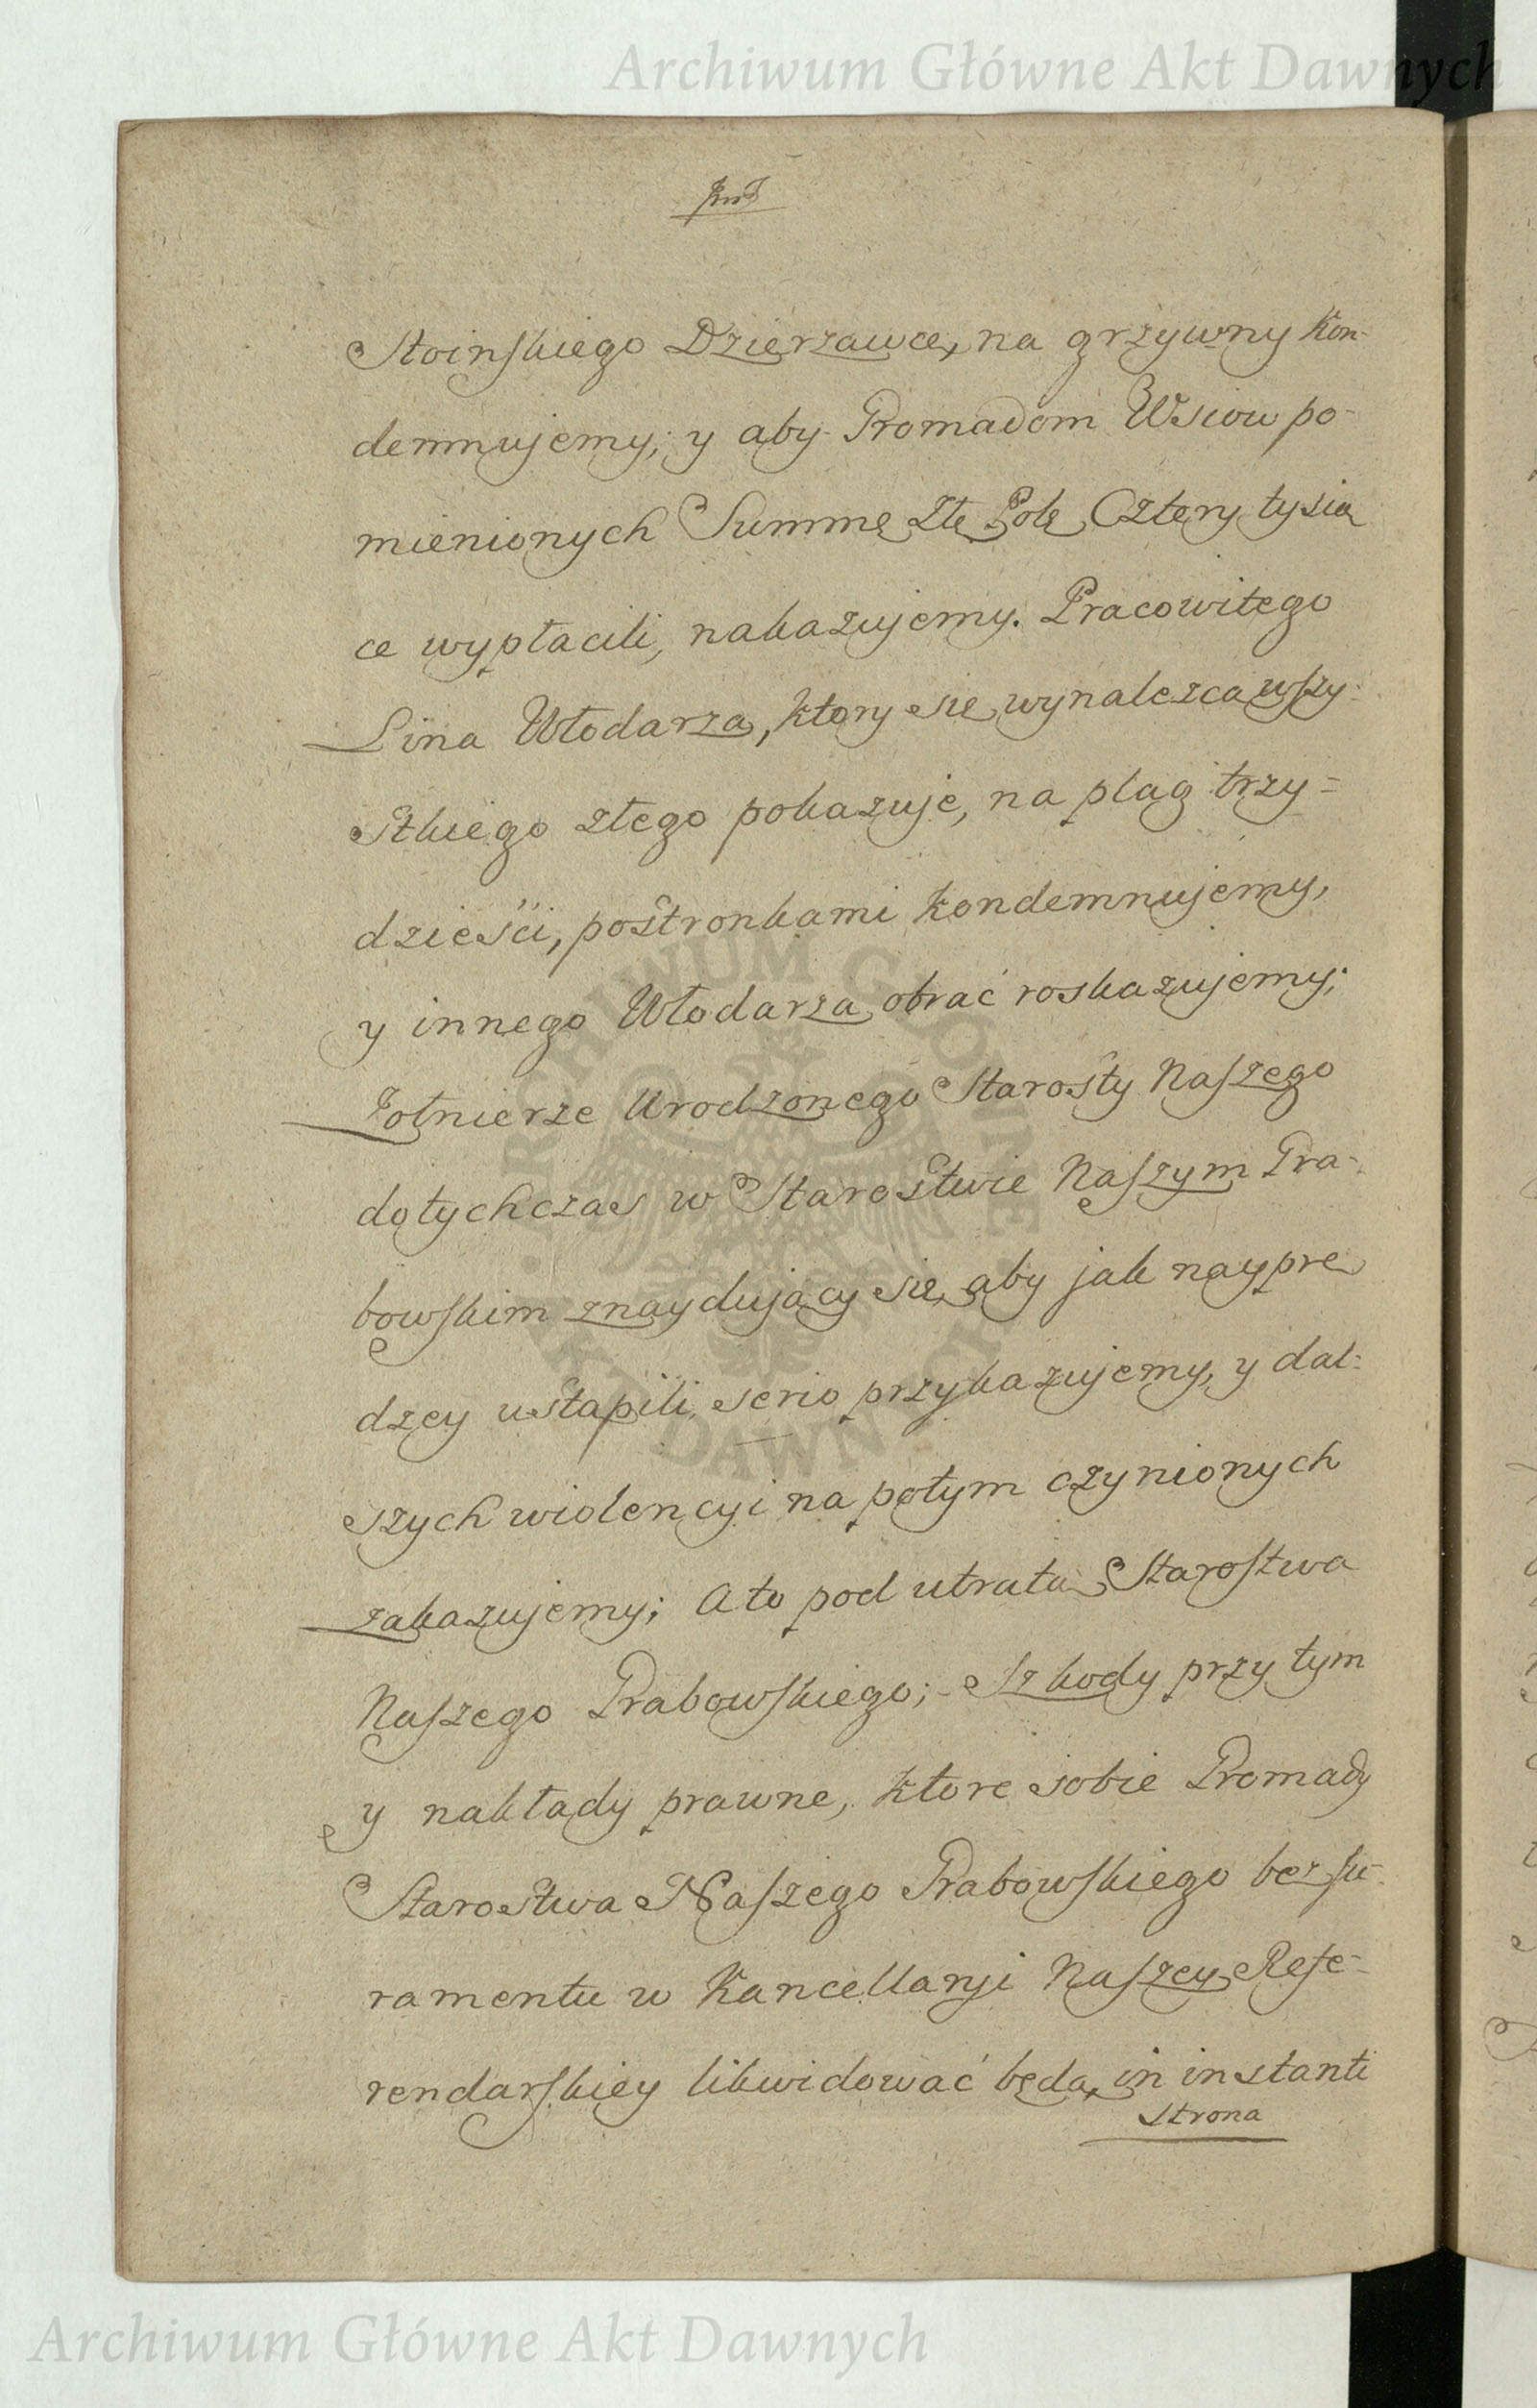 Archiwum Główne Akt Dawnych
Stoinskiego Dzierzawcę, na grzywny kon-
demnujemy; y aby Gromadom Wsiow po-
mienionych Summę Złł Polł Cztery tysią
ce wypłacili, nakazujemy. Pracowitego
Lina Włodarza, ktory się wynalezcą wszy-
stkiego złego pokazuje, na plag trzy=
dzieści, postronkami kondemnujemy,
y innego Włodarza obrać roskazujemy;
Zołnierze Urodzonego Starosty Naszego
dotychczas w Starostwie Naszym Gra-
bowskim znaydujący się, aby jak nayprę
dzey ustąpili, serio przykazujemy, y dal-
szych wiolencyi na potym czynionych
zakazujemy; a to pod utratą Starostwa
Naszego Grabowskiego; Szkody przy tym
y nakłady prawne, ktore sobie Gromady
Starostwa Naszego Grabowskiego bez Ju-
ramentu w Kancellaryi Naszey Refe-
rendarskiey likwidować będą, in instanti
strona
ARCHIWUM GŁÓWNE AKT DAWNYCH
Archiwum Główne Akt Dawnych